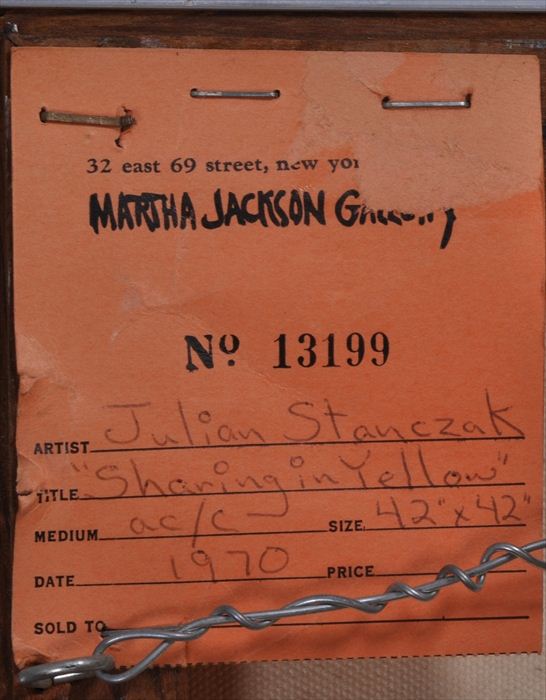 32 east 69 street, new yor
MARTHA JACKSON GALLERY
Nº 13199
ARTIST Julian Stanczak
TITLE "Sharing in Yellow"
MEDIUM ac/c SIZE 42" x 42"
DATE 1970 PRICE
SOLD TO